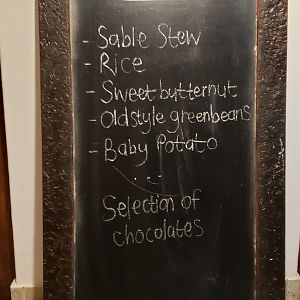 - Sable Stew
- Rice
- Sweet butternut
- Oldstyle greenbeans
- Baby Potato
...
Selection of
chocolates